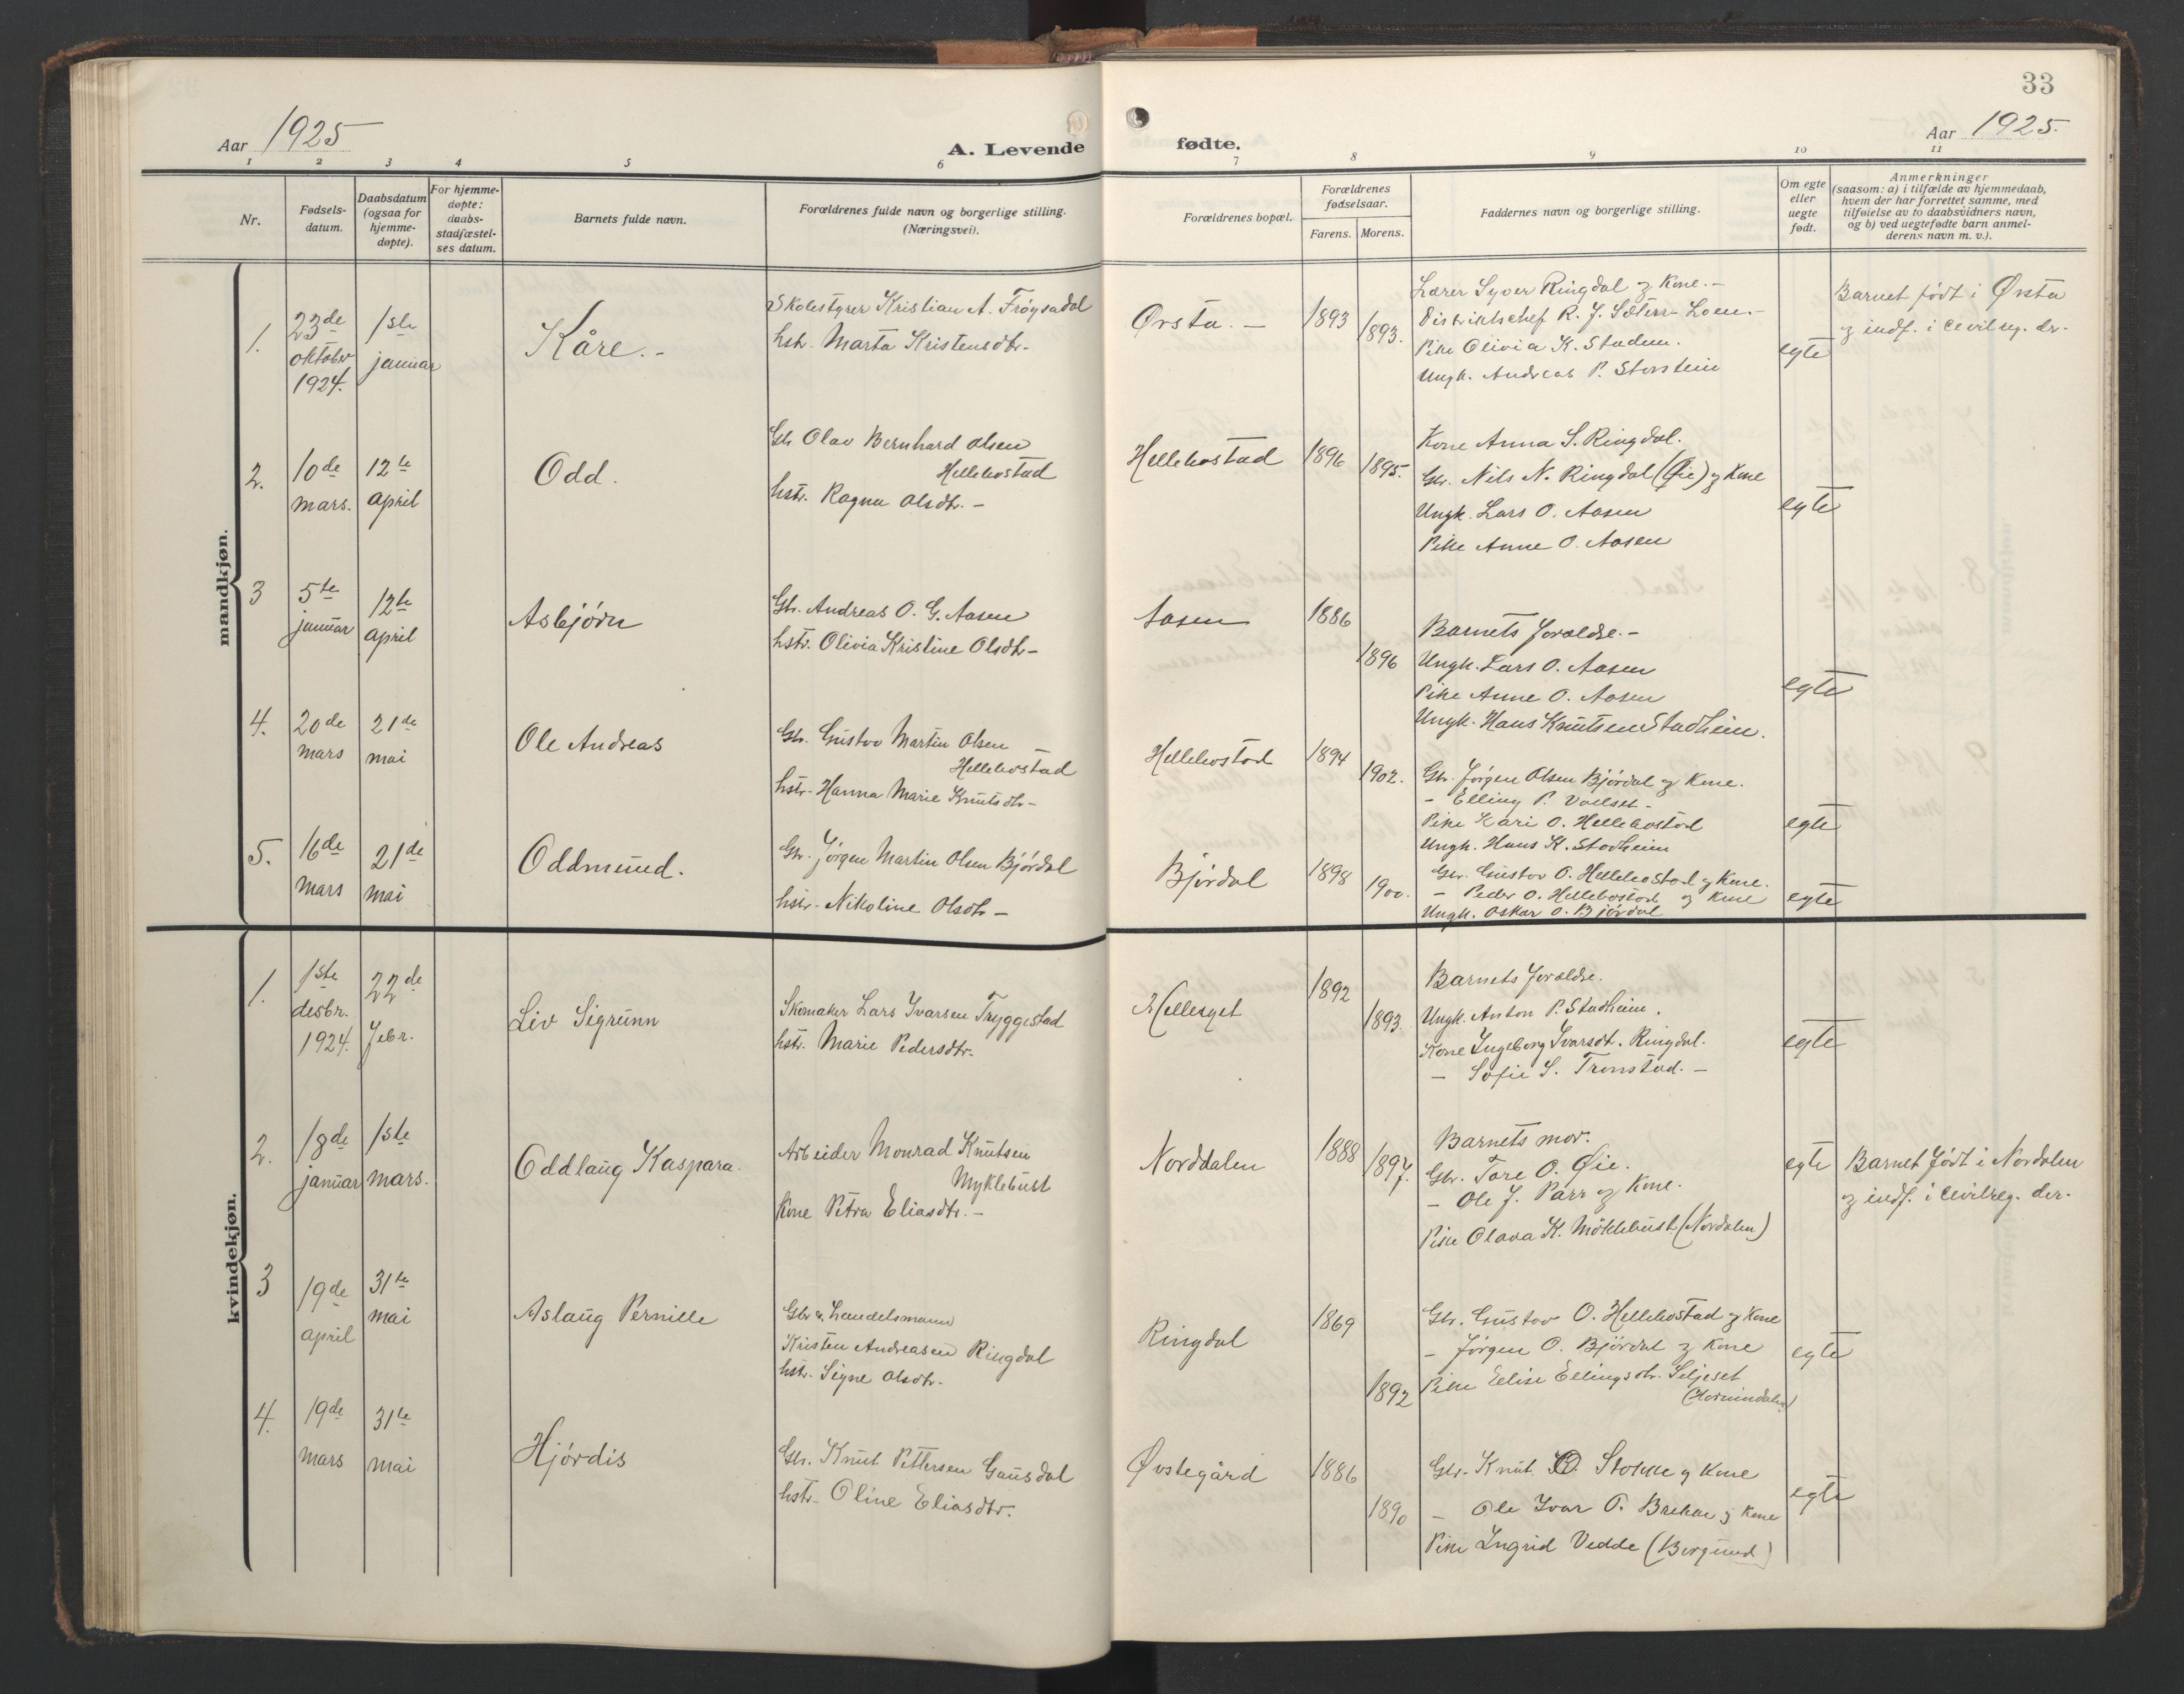 33
Aar 1925
A. Levende
fødte.
Aar 1925.
1 2 3 4 5 6 7 8 9 10 11
Nr.
Fødsels-
datum.
Daabsdatum
(ogsaa for
hjemme-
døpte).
For hjemme-
døpte:
daabs-
stadfæstel-
ses datum.
Barnets fulde navn.
Forældrenes fulde navn og borgerlige stilling.
(Næringsvei).
Forældrenes bopæl.
Forældrenes
fødselsaar.
Farens. Morens.
Faddernes navn og borgerlige stilling.
Om egte
eller
uegte
født.
Anmerkninger
(saasom: a) i tilfælde av hjemmedaab,
hvem der har forrettet samme, med
tilføielse av to daabsvidners navn,
og b) ved uegtefødte barn anmel-
derens navn m. v.).
mandkjøn.
1.
23de
oktober
1924.
1ste
januar
Kåre.-
Skolestyrer Kristian A. Frøysadal
hstr. Marta Kristensdtr.-
Ørsta.-
1893
1893.
Lærer Syver Ringdal og Kone.-
Distriktschef R. J. Sætern Loen.-
Pike Olivia K. Stadem.
Ungk. Andreas P. Storstein
egte
Barnet født i Ørsta
og indf. i civilreg. der.
2.
10de
mars.
12te
april
Odd.
Gbr. Olav Bernhard Olsen
Hellebostad
hstr. Ragna Olsdtr.-
Hellebostad
1896
1895.
Kone Anna S. Ringdal.
Gbr. Nils N. Ringdal (Øie) og Kone
Ungk. Lars O. Aasen
Pike Anne O. Aasen
egte
3
5te
januar
12te
april
Asbjørn
Gbr. Andreas O. G. Aasen
hstr. Olivia Kristine Olsdtr-
Aasen
1886
1896
Barnets forældre.-
Ungk. Lars O. Aasen
Pike Anne O. Aasen
Ungk. Hans Knutsen Stadheim.
egte
4.
20de
mars
21de
mai
Ole Andreas
Gbr. Gustav Martin Olsen
Hellebostad
hstr. Hanna Marie Knutsdtr-
Hellebostad
1894
1902.
Gbr. Jørgen Olsen Bjørdal og Kone.
- Elling P. Vollset-
Pike Kari O. Hellebostad
Ungk. Hans K. Stadheim
egte
5.
16de
mars
21de
mai
Oddmund.
Gbr. Jørgen Martin Olsen Bjørdal
hstr. Nikoline Olsdtr-
Bjørdal
1898
1900.
Gbr. Gustav O. Hellebostad og Kone.
- Peder O. Hellebostad og Kone
Ungk. Oskar O. Bjørdal
egte
kvindekjøn.
1.
1ste
desbr.
1924.
22de
febr.
Liv Sigrunn
Skomaker Lars Ivarsen Tryggestad
hstr. Marie Pedersdtr.
Hellesyet
1892
1893.
Barnets forældre.
Ungk. Anton P. Stadheim.
Kone Ingeborg Ivarsdt. Ringdal.
- Sofie S. Tronstad.-
egte
2.
18de
januar
1ste
mars.
Oddlaug Kaspara.
Arbeider Monrad Knutsen
Myklebust
Kone Petra Eliasdtr.-
Norddalen
1888
1897.
Barnets mor.
Gbr. Tore O. Øie.
- Ole J. Parr og Kone.
Pike Olava K. Möklebust (Nordalen)
egte
Barnet født i Nordalen
og indf. i civilreg. der.
3
19de
april
31te
mai
Aslaug Pernille
Gbr & handelsmann
Kristen Andreasen Ringdal
hstr. Signe Olsdtr.
Ringdal
1869
1892
Gbr. Gustav O. Hellebostad og Kone
- Jørgen O. Bjørdal og Kone
Pike Elise Ellingsdtr. Seljeset
(Hornindalen)
egte
4.
19de
mars
31te
mai
Hjørdis
Gbr. Knut Pettersen Gausdal
hstr. Oline Eliasdtr.
Øvstegård
1886
1890
Gbr. Knut O. Stokke og Kone
- Ole Ivar O. Brekke og Kone
Pike Ingrid Vedde (Borgund)
egte